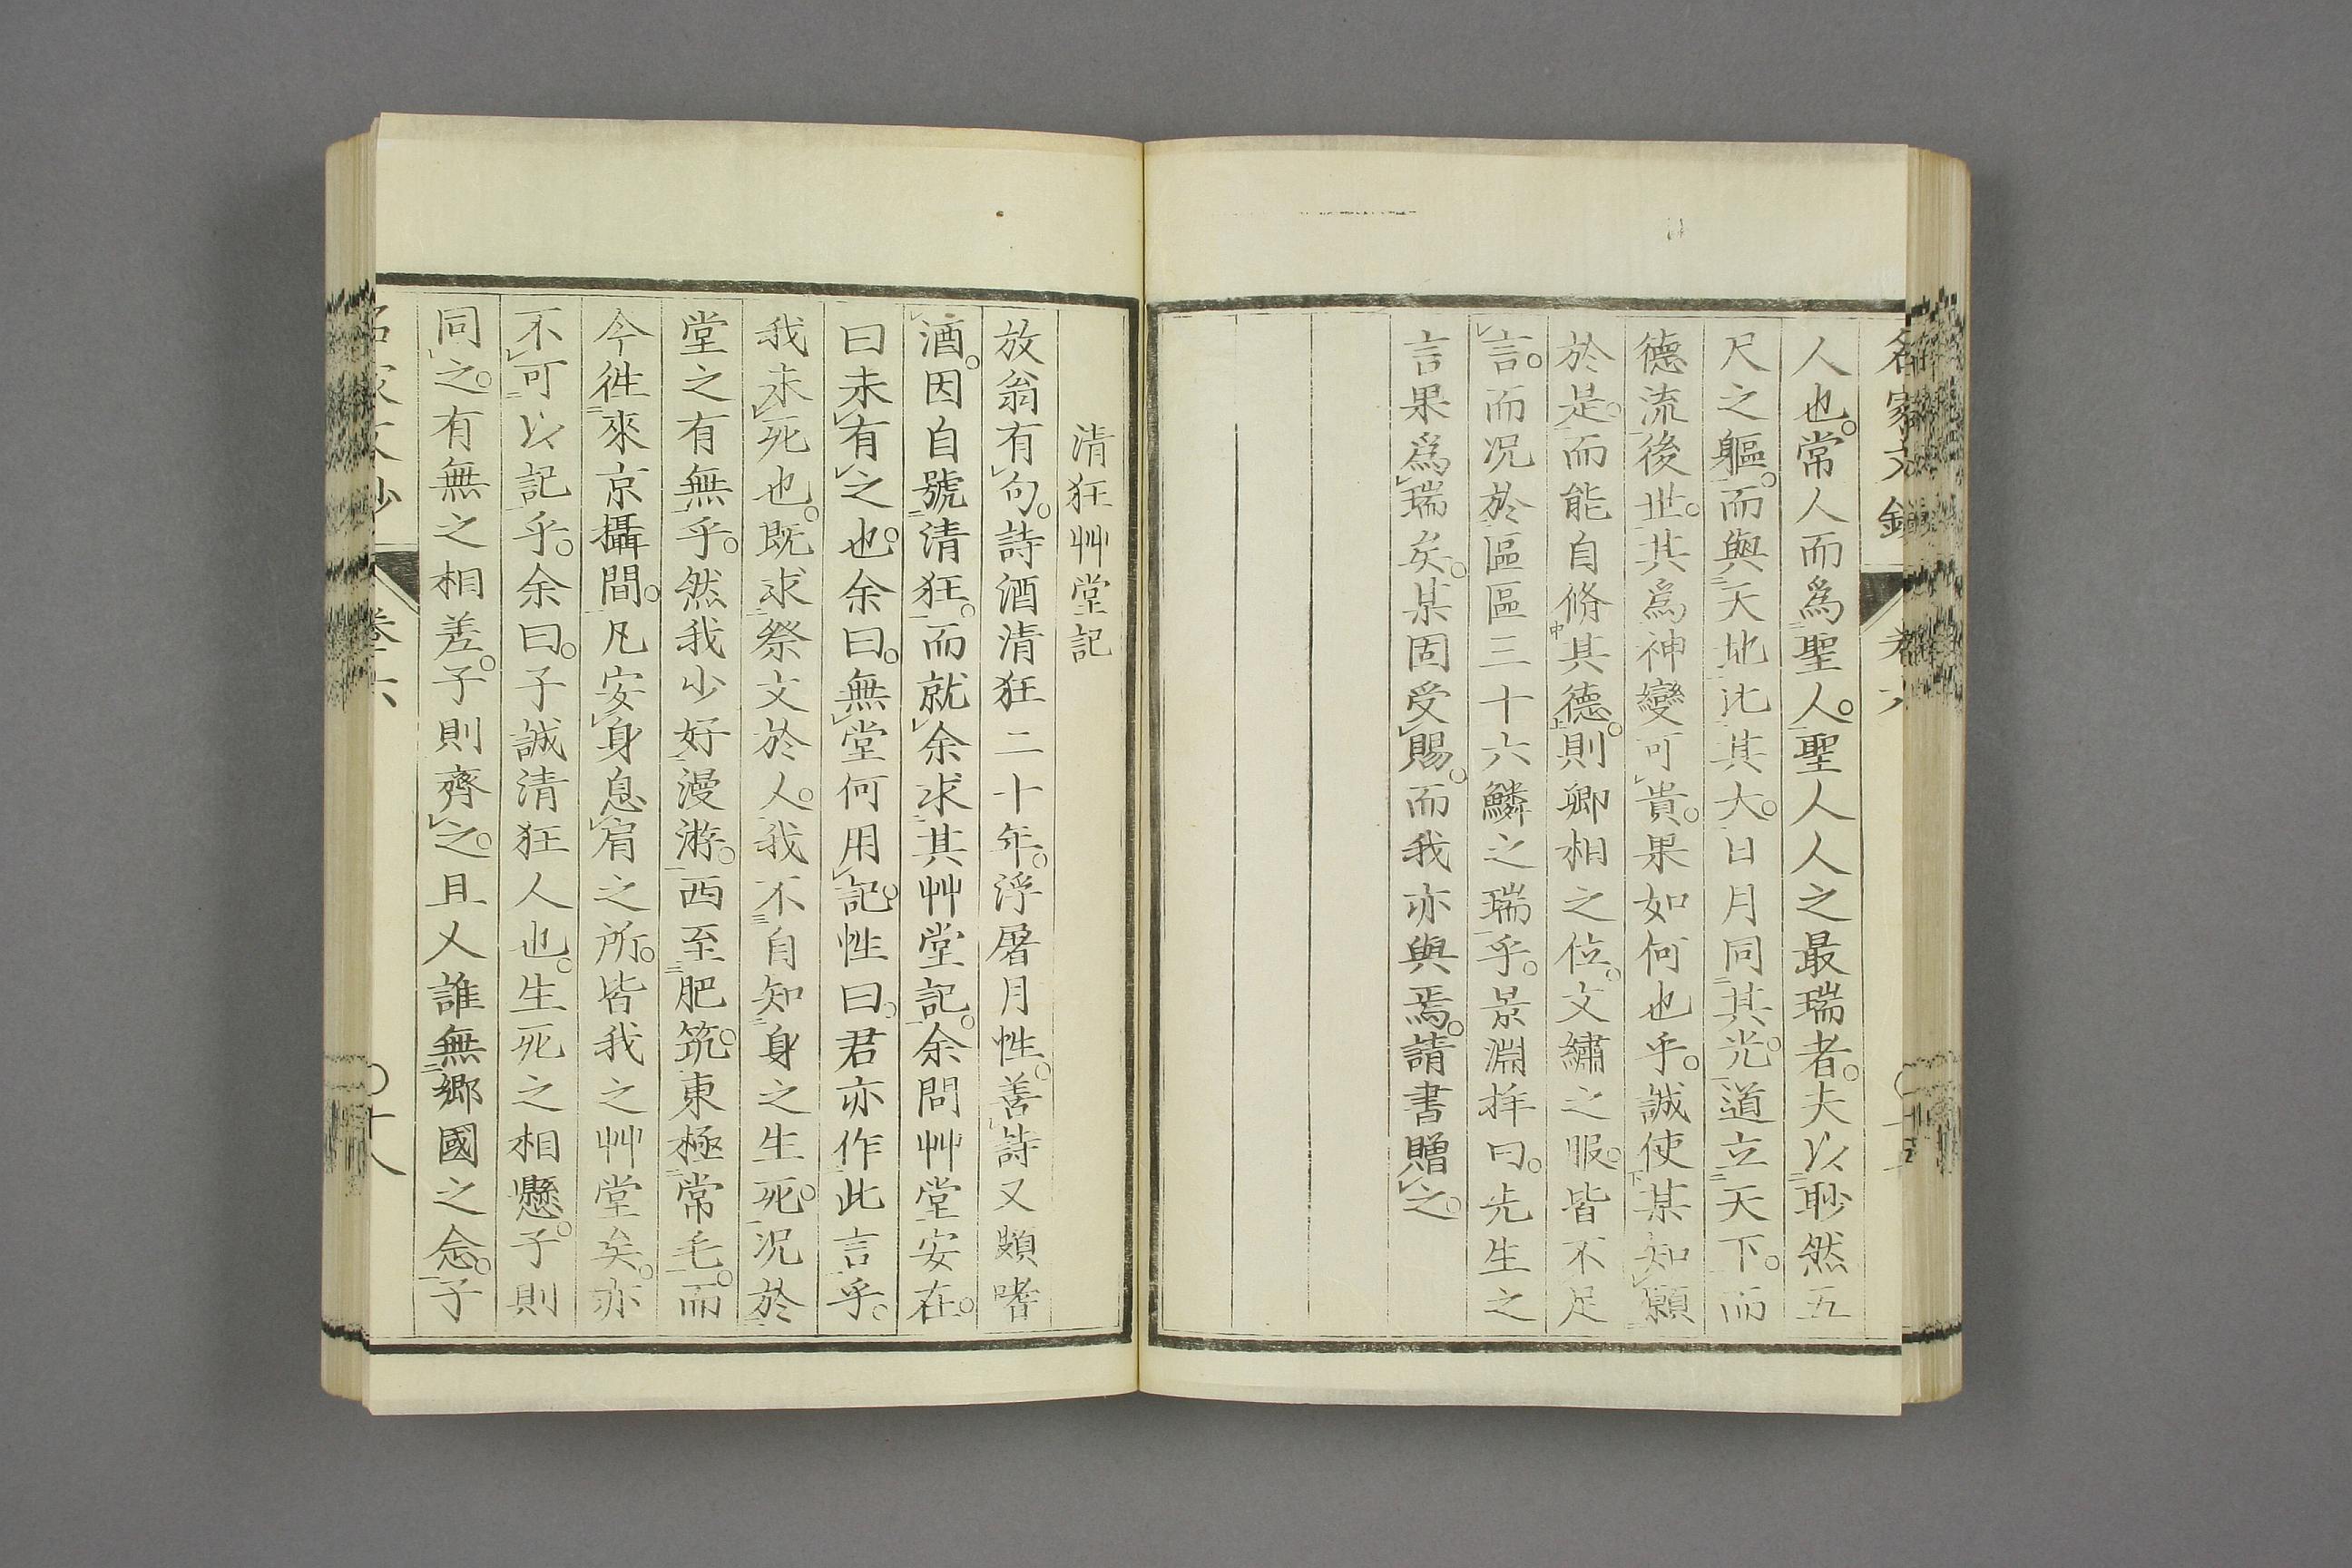 人也。常人而爲聖人。聖人人之最瑞者。夫以眇然五
尺之軀。而與天地比其大。日月同其光。道立天下。而
德流後世。其爲神變可貴。果如何也乎。誠使某知願
於是。而能自脩其德。則卿相之位。文繡之服。皆不足
言。而况於區區三十六鱗之瑞乎。景淵拜曰。先生之
言果爲瑞矣。某固受賜。而我亦與焉。請書贈之。
清狂艸堂記
放翁有句。詩酒清狂二十年。浮屠月性。善詩又頗嗜
酒。因自號清狂。而就余求其艸堂記。余問艸堂安在。
曰未有之也。余曰。無堂何用記。性曰。君亦作此言乎。
我未死也。既求祭文於人。我不自知身之生死。况於
堂之有無乎。然我少好漫游。西至肥筑。東極常毛。而
今徃來京攝間。凡安身息肩之所。皆我之艸堂矣。亦
不可以記乎。余曰。子誠清狂人也。生死之相懸。子則
同之。有無之相差。子則齊之。且人誰無鄉國之念。子